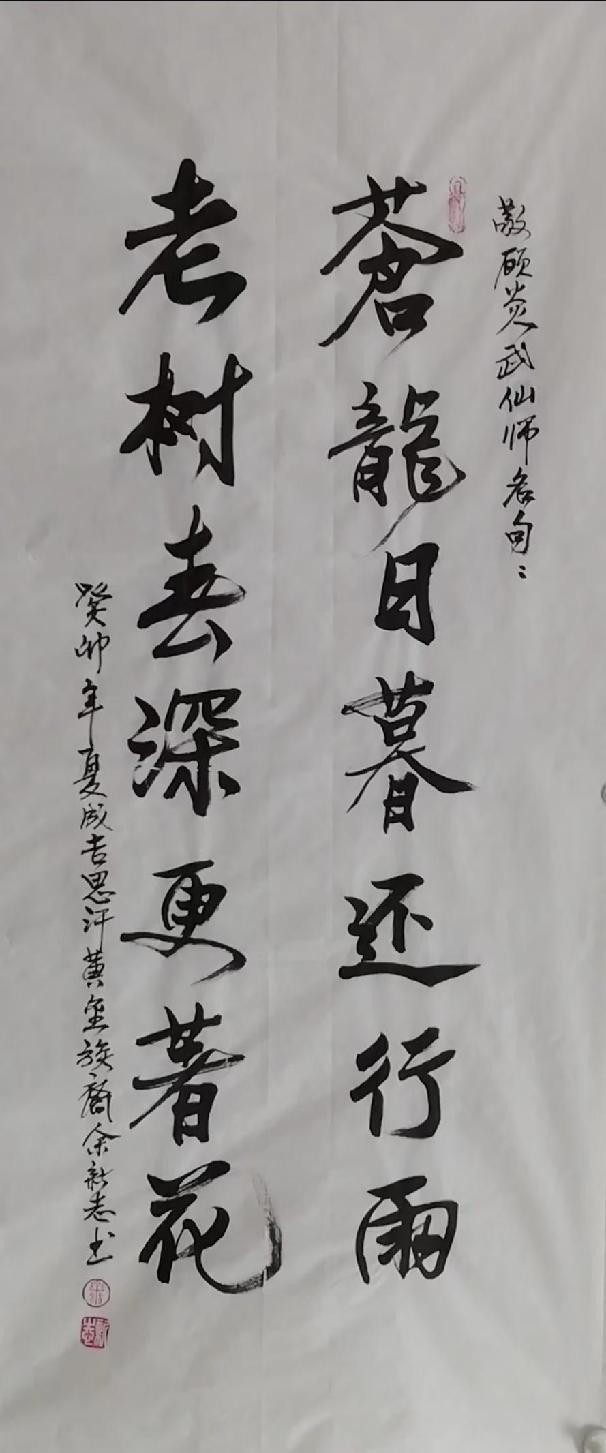 敬顾炎武仙师名句:
蒼龍日暮还行雨
老树春深更著花
癸卯年夏成吉思汗黄金族裔余新志书